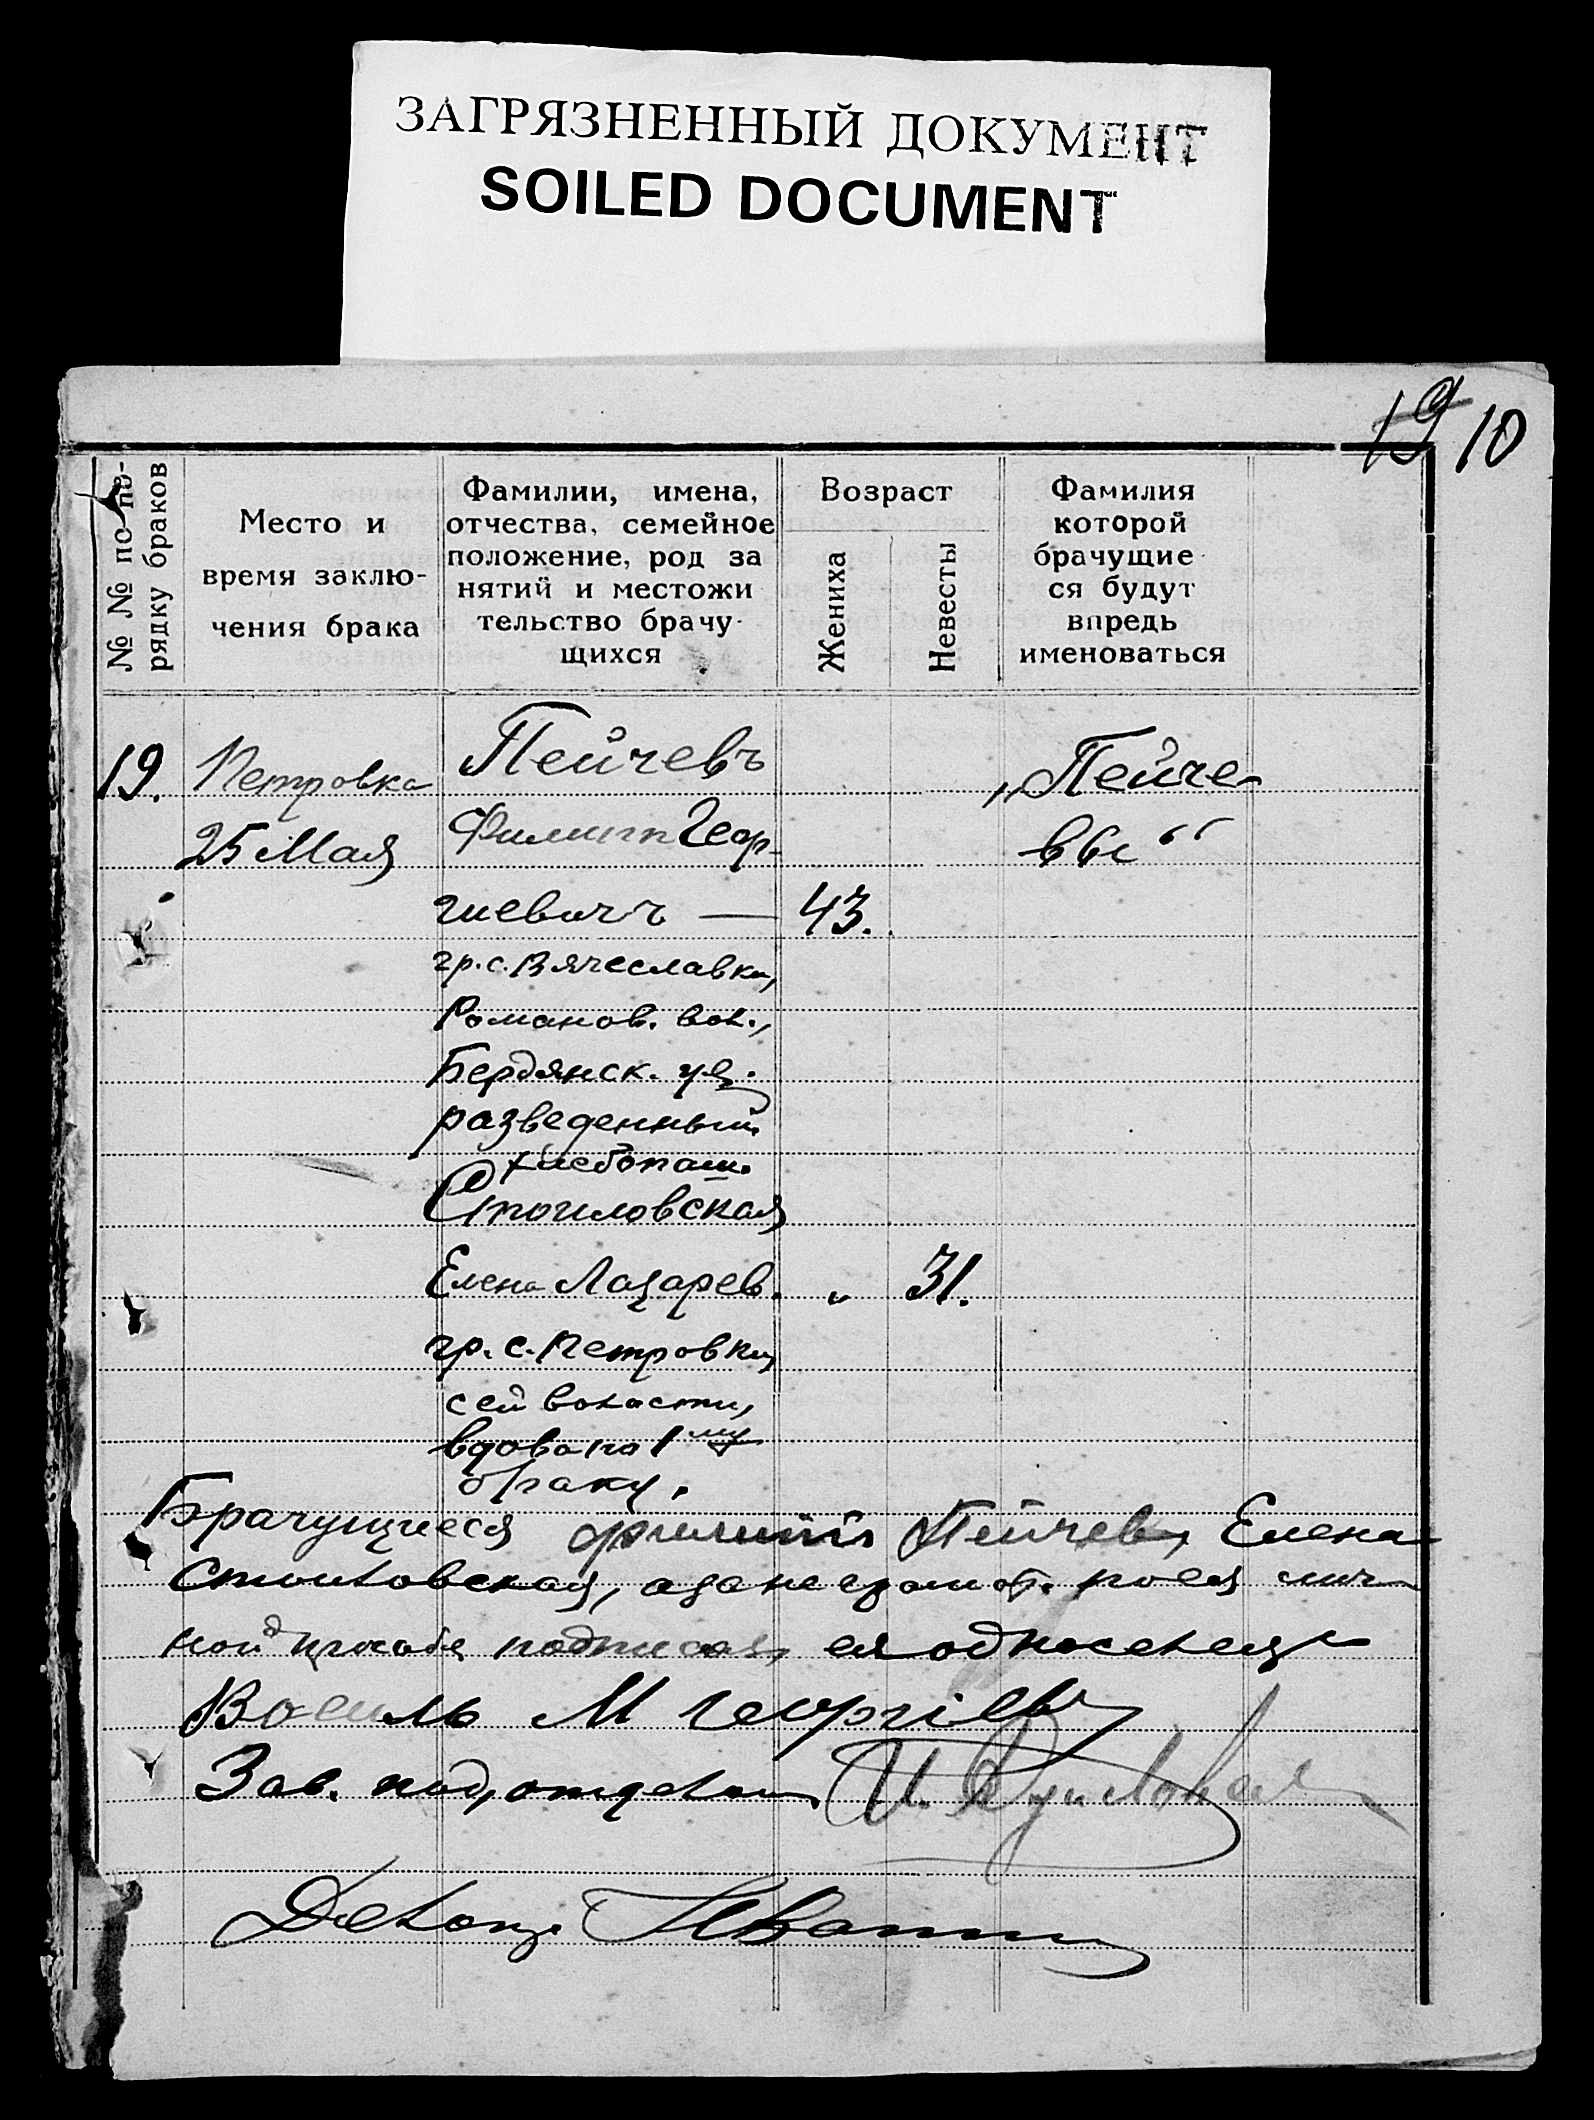 ЗАГРЯЗНЕННЫЙ ДОКУМЕНТ
SOILED DOCUMENT
19 10
№ № по по-
рядку браков
Место и
время заклю-
чения брака
Фамилии, имена,
отчества, семейное
положение, род за
нятий и местожи
тельство брачу-
щихся
Возраст
Жениха
Невесты
Фамилия
которой
брачущие
ся будут
впредь
именоваться
19. Петровка Пейчевъ „Пейче-
25 Мая Филипп Геор- вы“
гиевичъ — 43.
гр. с. Вячеславки,
Романов. вол.,
Бердянск. уез.
разведенный
хлебопаш.
Стоиловская
Елена Лазарев. „ 31.
гр. с. Петровки
сей волости,
вдова по 1му
браку.
Брачущиеся Филипп Пейчев, Елена
Стоиловская, а за неграмот.
ной подписал, ея односелец
Василь М Георгіев
Зав. подотделом И.
Делопр. Иванин